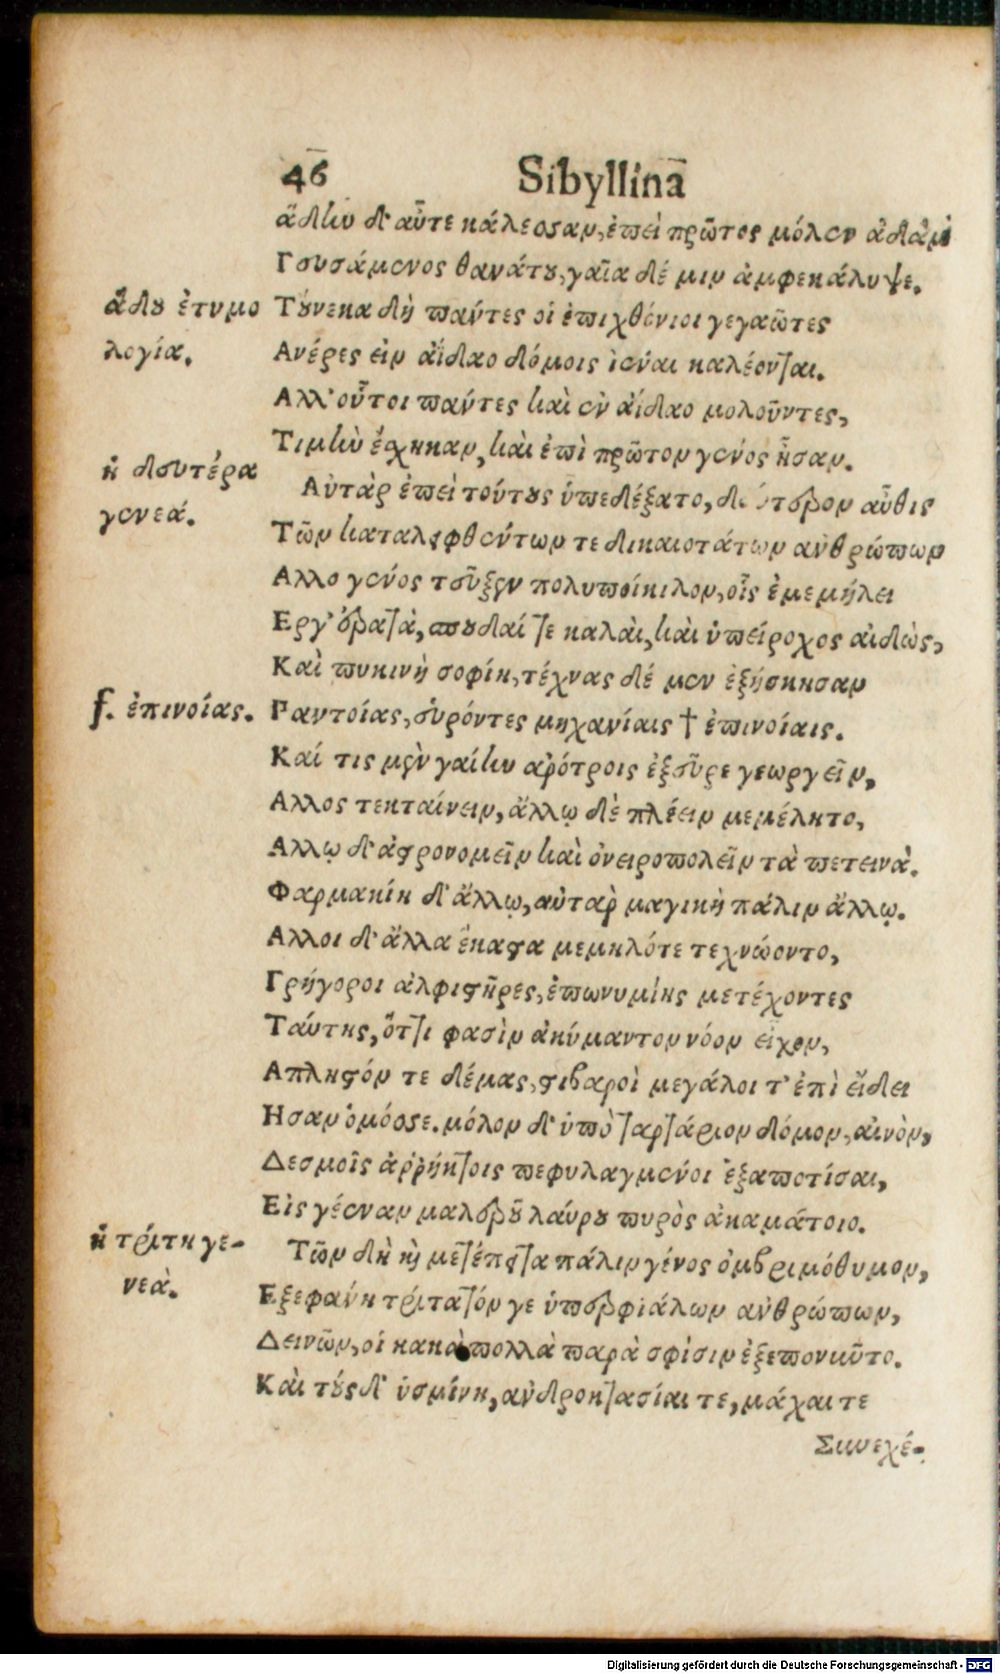 46 Sibyllina
ᾅδην δ' αὖτε κάλεσσαν, ἐπεὶ πρῶτος μόλεν ἀδὰμ
Γευσάμενος θανάτου, γαῖα δέ μιν ἀμφεκάλυψε.
ᾅδου ἐτυμο
λογία.
Τούνεκα δὴ πάντες οἱ ἐπιχθόνιοι γεγαῶτες
Ανέρες εἰν ἀΐδαο δόμοις ἰέναι καλέονται.
Αλλ' οὗτοι πάντες καὶ ἐν ἀΐδαο μολοῦντες,
Τιμὴν ἔσχηκαν, καὶ ἐπὶ πρῶτον γένος ἦσαν.
ἡ δευτέρα
γενεά.
Αὐτὰρ ἐπεὶ τούτους ὑπεδέξατο, δεύτερον αὖθις
Τῶν καταλειφθέντων τε δικαιοτάτων ἀνθρώπων
Αλλο γένος τεῦξεν πολυποίκιλον, οἷς ἐμεμήλει
Εργ' ἐρατὰ, σπουδαί τε καλαὶ, καὶ ὑπείροχος αἰδὼς,
Καὶ πυκινὴ σοφίη, τέχνας δέ μεν ἐξήσκησαν
f. ἐπινοίας.
Παντοίας, εὑρόντες μηχανίαις † ἐπινοίαις.
Καί τις μὲν γαίην ἀρότροις ἐξεῦρε γεωργεῖν,
Αλλος τεκταίνειν, ἄλλῳ δὲ πλέειν μεμέλητο,
Αλλῳ δ' ἀστρονομεῖν καὶ ὀνειροπολεῖν τὰ πετεινά.
Φαρμακίη δ' ἄλλῳ, αὐτὰρ μαγικὴ πάλιν ἄλλῳ.
Αλλοι δ' ἄλλα ἕκαστα μεμηλότε τεχνώοντο,
Γρήγοροι ἀλφιστῆρες, ἐπωνυμίης μετέχοντες
Ταύτης, ὅττι φασὶν ἀκύμαντον νόον εἶχον,
Απληστόν τε δέμας, στιβαροὶ μεγάλοι τ' ἐπὶ εἴδει
Ησαν ὁμόσσε. μόλον δ' ὑπὸ ταρτάριον δόμον, αἰνὸν,
Δεσμοῖς ἀῤῥήκτοις πεφυλαγμένοι ἐξαποτίσαι,
Εἰς γέεναν μαλεροῦ λαύρου πυρὸς ἀκαμάτοιο.
ἡ τρίτη γε-
νεὰ.
Τῶν δὴ καὶ μετέπειτα πάλιν γένος ὀμβριμόθυμον,
Εξεφάνη τρίτατόν γε ὑπερφιάλων ἀνθρώπων,
Δεινῶν, οἱ κακὰ πολλὰ παρὰ σφίσιν ἐξεπονηῦτο.
Καὶ τούς δ' ὑσμίνη, ἀνδροκτασίαι τε, μάχαι τε
Συνεχέ-
Digitalisierung gefördert durch die Deutsche Forschungsgemeinschaft - DFG